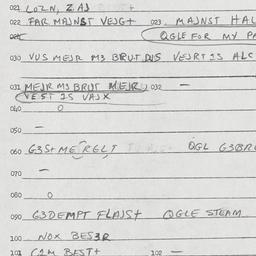 021 LOZN, ZAJ
022 FAR MAJNST VEJGT 023. MAJNST HAL
024 OGLE FOR MY PA
030 VUS MEJR M3 BRUT DUS VEJRT IS ALC
031 MEJR M3 BRUT MEJR 032 —
VEST IS VAJX
040 O
050 —
060 G3S+MERELT OGL G3BR
070 —
080 O
090 G3DEMPT FLAJST OGLE STEAM
100 NOX BES3R
101 CIM BEST+ 102 —